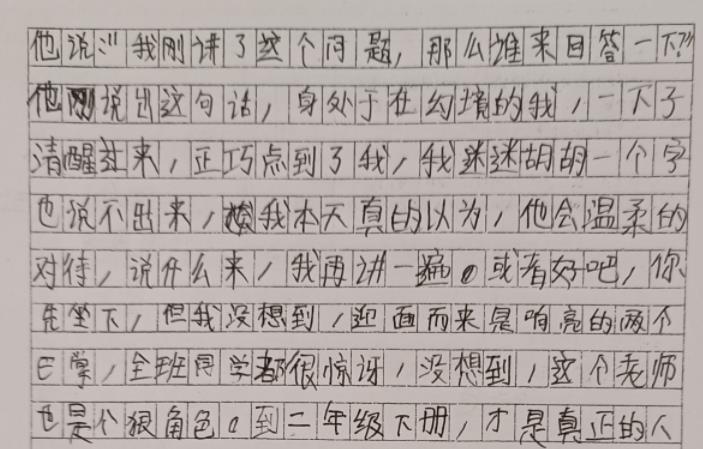 他说:"我刚讲了这个问题,那么谁来回答一下?"
他刚说出这句话,身处于在幻境的我,一下子
清醒过来,正巧点到了我,我迷迷胡胡一个字
也说不出来,我本天真的以为,他会温柔的
对待,说什么来,我再讲一遍。或者好吧,你
先坐下,但我没想到,迎面而来是响亮的两个
巴掌,全班同学都很惊讶,没想到,这个老师
也是个狠角色。到二年级下册,才是真正的人